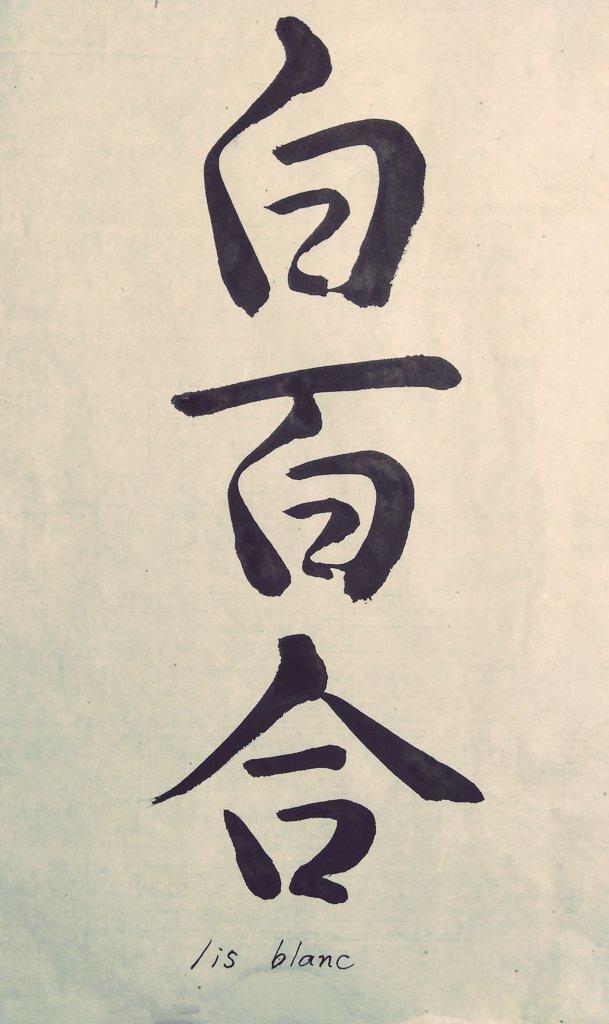 白百合
lis blanc